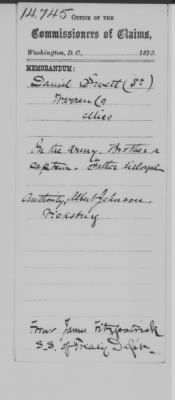 14745
OFFICE OF THE
Commissioners of Claims,
Washington, D. C., 1873.
MEMORANDUM:
Daniel (Sr)
Warren Co
Miss
In the army. Brother a
captain - Father disloyal
Authority, Albert Johnson
Vicksburg
From James Fitzpatrick
S.S. of Treasy Dept.